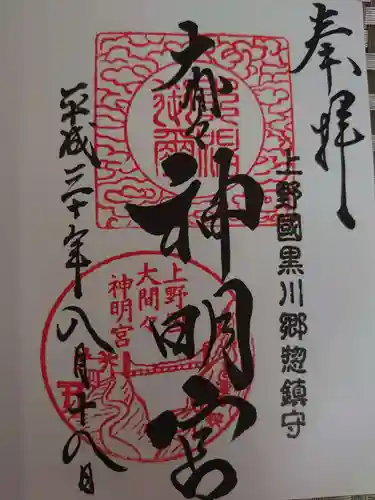 奉拝
上野國黒川郷惣鎮守
大間々
神明宮
平成三十年八月十八日
上野
大間々
神明宮